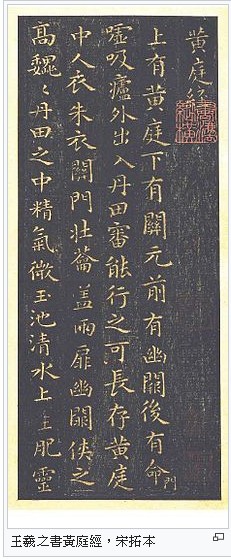 黃庭經
上有黃庭下有關元前有幽闕後有命門
噓吸廬外出入丹田審能行之可長存黃庭
中人衣朱衣關門壯蘥蓋兩扉幽闕俠之
高巍〻丹田之中精氣微玉池清水上生肥靈
王羲之書黃庭經，宋拓本